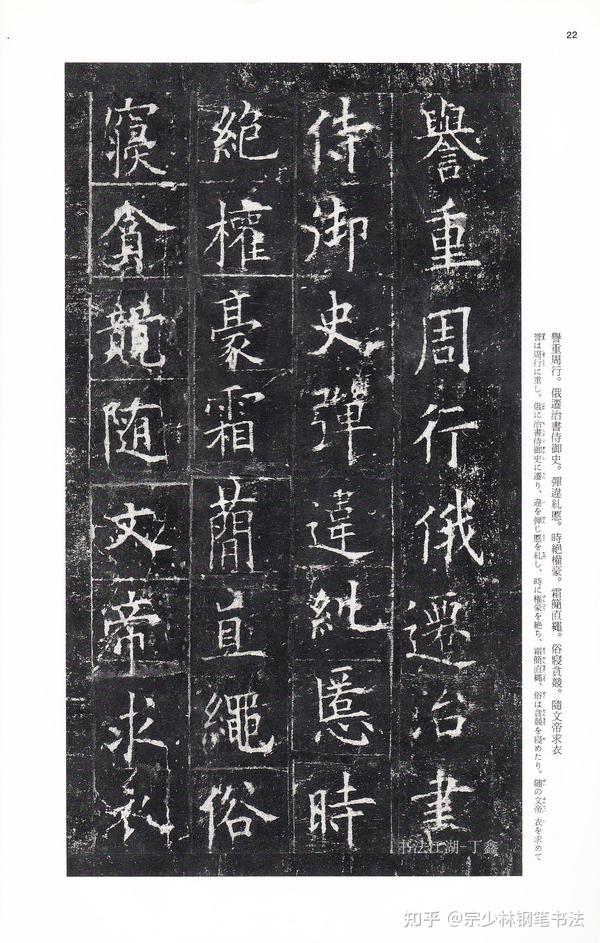 22
譽重周行。俄遷治書侍御史。彈違糺慝。時絶權豪。霜簡直繩。俗寢貪競。隨文帝求衣
譽は周行に重し。俄に治書侍御史に遷り、違を彈じ慝を糺し、時に權豪を絶ち、霜簡直繩、俗は貪競を寢めたり。隨の文帝 衣を求めて
譽重周行俄遷治書
侍御史彈違糺慝時
絶權豪霜蕳直繩俗
寢貪競随文帝求衣
书法江湖-丁鑫
知乎 @宗少林钢笔书法